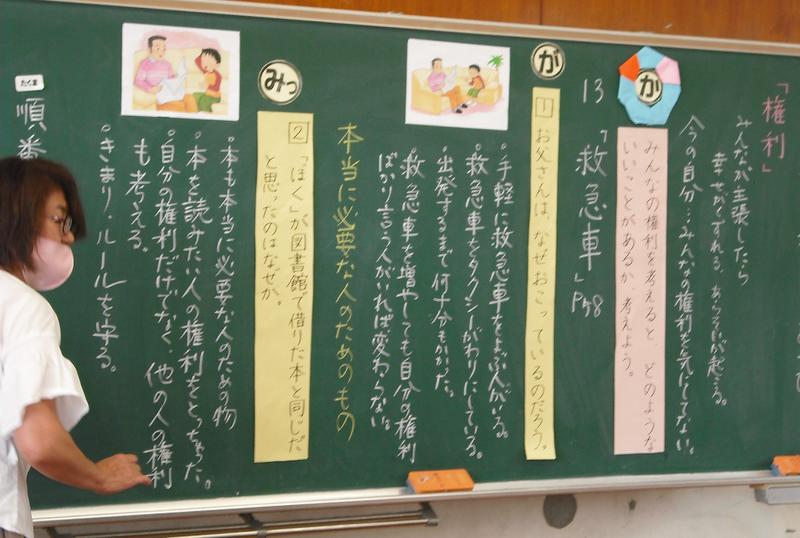 「権利」
みんなが主張したら
幸せがくずれる、あらそいが起こる。
今の自分…みんなの権利を気にしてない。
か
みんなの権利を考えると、どのような
いいことがあるか、考えよう。
13 「救急車」P58
が
1 お父さんは、なぜおこっているのだろう。
・手軽に救急車をよぶ人がいる。
・救急車をタクシーがわりにしている。
・出発するまで何十分もかかった。
・救急車を増やしても自分の権利
ばかり言う人がいれば変わらない。
本当に必要な人のためのもの
みっ
2 「ぼく」が図書館で借りた本と同じだ
と思ったのはなぜか。
・本も本当に必要な人のための物
・本を読みたい人の権利をとっちゃった。
・自分の権利だけでなく、他の人の権利
も考える。
・きまり・ルールを守る。
たくま
順番